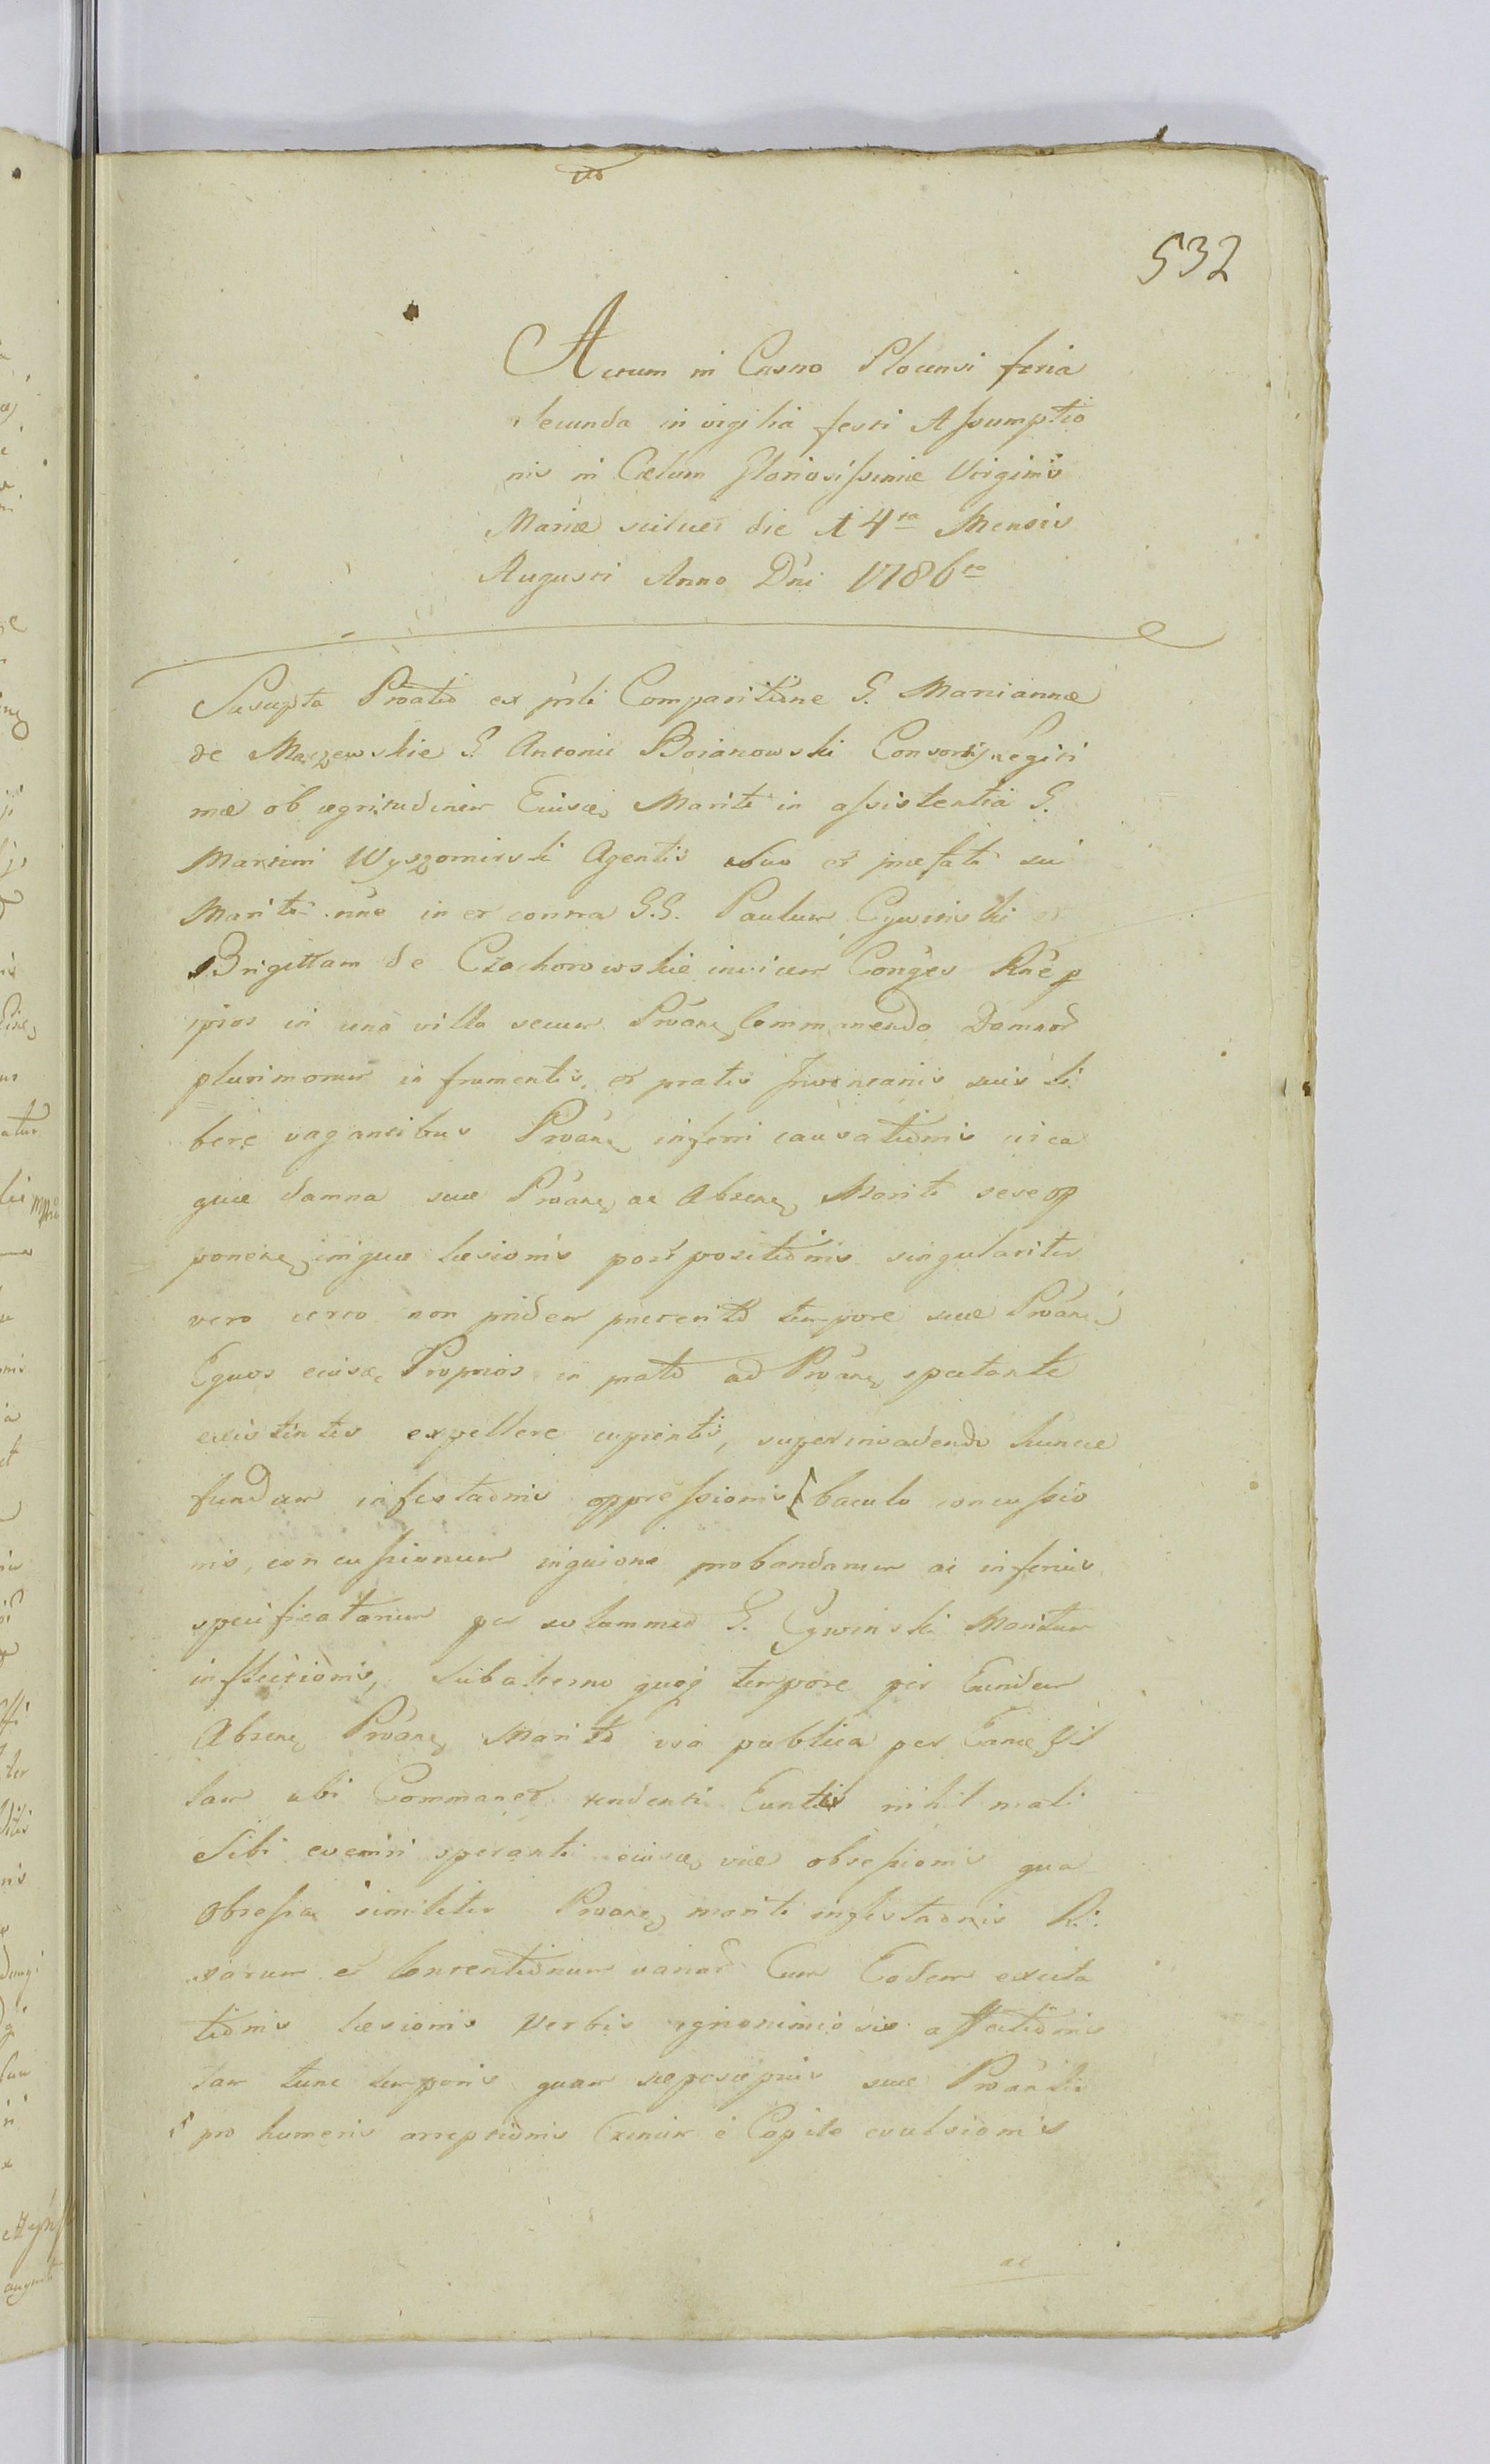 532
Actum in Castro Plocensi feria
secunda in vigilia festi Assumptio
nis in Cælum Gloriosissimæ Virginis
Mariæ scilicet die 14ta Mensis
Augusti Anno Dni 1786to
Suscepta Proatio ex psti Comparitione G. Mariannæ
de Mazewskie G. Antonii Boianowski Consortis Legiti
mæ ob ægritudinem Mariti in assistentia G.
Marcini Wyszomirski Agentis suo et præfati sui
Mariti nne in et contra G.G. Paulum Cywinski et
Brigittam de Czochorowskie invicem Conges Rne
ipsos in una villa secum Commanendo Damnor
plurimorum in frumentis, et pratis suis li
bere vagantibus inferri causationis circa
quæ damna suæ ac Mariti sese op
ponen iniquæ læsionis postpositionis singulariter
vero certo non pridem præterito tempore suæ
Equos Proprios in prato ad spectante
existentes expellere cupientis, superinvadendo huncce
fundum infestaonis oppressionis baculo concussio
nis, concussionum probandarum ac inferius
specificatarum per solummodo G. Cywinski Maritum
inflictionis, subalterno quoq tempore per Eundem
Absen Marito via publica per Eance Vil
lam ubi Commanet tendenti Eunti nihil mali
Sibi eveniri speranti viæ obsessionis qua
obsessa similiter mariti infestaonis Ri
xarum et Contentionum varior Cum Eodem excita
tionis læsionis Verbis ignominiosis affectionis
tam tunc temporis quam sæpesæpius suæ
pro humeris arreptionis Crinium è Capite evulsionis
ac